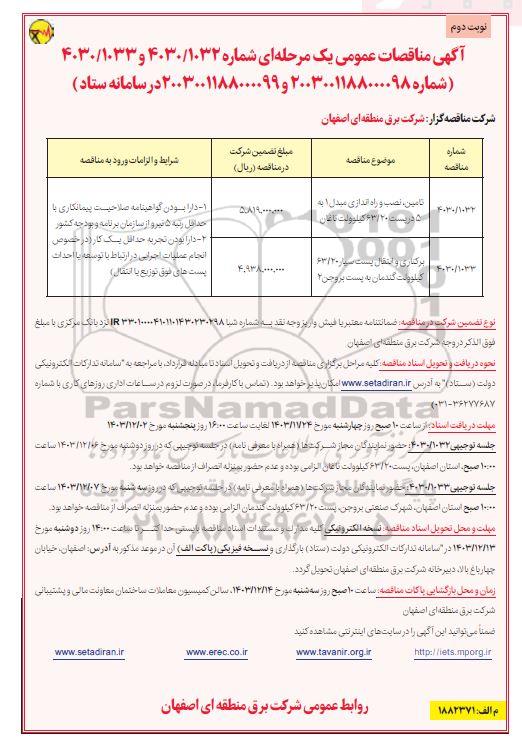 نوبت دوم
آگهی مناقصات عمومی یک مرحله‌ای شماره ۴۰۳۰/۱۰۳۲ و ۴۰۳۰/۱۰۳۳
(شماره ۲۰۰۳۰۰۱۱۸۸۰۰۰۰۹۸ و ۲۰۰۳۰۰۱۱۸۸۰۰۰۰۹۹ در سامانه ستاد )
شرکت مناقصه‌گزار: شرکت برق منطقه‌ای اصفهان
شماره مناقصه
موضوع مناقصه
مبلغ تضمین شرکت در مناقصه (ریال)
شرایط و الزامات ورود به مناقصه
۴۰۳۰/۱۰۳۲
تامین، نصب و راه اندازی مبدل ۱ به
۵ در پست ۶۳/۲۰ کیلوولت تاغان
۵،۸۱۹،۰۰۰،۰۰۰
۴۰۳۰/۱۰۳۳
برکناری و انتقال پست سیار ۶۳/۲۰
کیلوولت گندمان به پست بروجن۲
۴،۹۳۸،۰۰۰،۰۰۰
۱-دارا بـودن گواهینامه صلاحیـت پیمانکاری با
حداقل رتبه ۵ نیرو از سازمان برنامه و بودجه کشور
۲-دارا بودن تجربه حداقل یـک کار (در خصوص
انجام عملیات اجرایی در ارتباط با توسعه یا احداث
پست های فوق توزیع یا انتقال)
نوع تضمین شرکت در مناقصه: ضمانتنامه معتبر یا فیش واریز وجه نقد بـه شماره شبا IR ۳۳۰۱۰۰۰۰۴۱۰۱۱۰۱۴۳۰۲۳۰۲۹۸ نزد بانک مرکزی با مبلغ
فوق الذکر در وجه شرکت برق منطقه‌ای اصفهان
نحوه دریافت و تحویل اسناد مناقصه: کلیه مراحل برگزاری مناقصه از دریافت و تحویل اسناد تا مبادله قرارداد، با مراجعه به "سامانه تدارکات الکترونیکی
دولت (سـتاد)" به آدرس www.setadiran.ir امکان‌پذیر خواهد بود. (تماس با کارفرما، در صورت لزوم در ساعات اداری روزهای کاری با شماره
۰۳۱-۳۶۲۷۷۶۸۷)
مهلت دریافت اسناد: از ساعت ۱۰ صبح روز چهارشنبه مورخ ۱۴۰۳/۱۱/۲۴ لغایت ساعت ۱۶:۰۰ روز پنجشنبه مورخ ۱۴۰۳/۱۲/۰۲
جلسه توجیهی ۴۰۳۰/۱۰۳۲: حضور نمایندگان مجاز شـرکت‌ها (همراه با معرفی نامه) در جلسه توجیهی که در روز دوشنبه مورخ ۱۴۰۳/۱۲/۰۶ ساعت
۱۰:۰۰ صبح، استان اصفهان، پست ۶۳/۲۰ کیلوولت تاغان الزامی بوده و عدم حضور بمنزله انصراف از مناقصه خواهد بود.
جلسه توجیهی ۴۰۳۰/۱۰۳۳: حضور نمایندگان مجاز شرکت‌ها (همراه با معرفی نامه) در جلسه توجیهی که در روز سه شنبه مورخ ۱۴۰۳/۱۲/۰۷ ساعت
۱۰:۰۰ صبح استان اصفهان، شهرک صنعتی بروجن، پست ۶۳/۲۰ کیلوولت گندمان الزامی بوده و عدم حضور بمنزله انصراف از مناقصه خواهد بود.
مهلت و محل تحویل اسناد مناقصه: نسخه الکترونیکی کلیه مدارک و مستندات اسناد مناقصه بایستی حداکثـر تا ساعت ۱۴:۰۰ روز دوشنبه مورخ
۱۴۰۳/۱۲/۱۳ در "سامانه تدارکات الکترونیکی دولت (ستاد) بارگذاری و نسـخه فیزیکی (پاکت الف) آن در موعد مذکور به آدرس: اصفهان، خیابان
چهارباغ بالا، دبیرخانه شرکت برق منطقه‌ای اصفهان تحویل گردد..
زمان و محل بازگشایی پاکات مناقصه: ساعت ۱۰ صبح روز سه‌شنبه مورخ ۱۴۰۳/۱۲/۱۴، سالن کمیسیون معاملات ساختمان معاونت مالی و پشتیبانی
شرکت برق منطقه‌ای اصفهان
ضمناً می‌توانید این آگهی را در سایت‌های اینترنتی مشاهده کنید
http://iets.mporg.ir www.tavanir.org.ir www.erec.co.ir www.setadiran.ir
روابط عمومی شرکت برق منطقه ای اصفهان
م الف: ۱۸۸۲۳۷۱
ParsNamadData